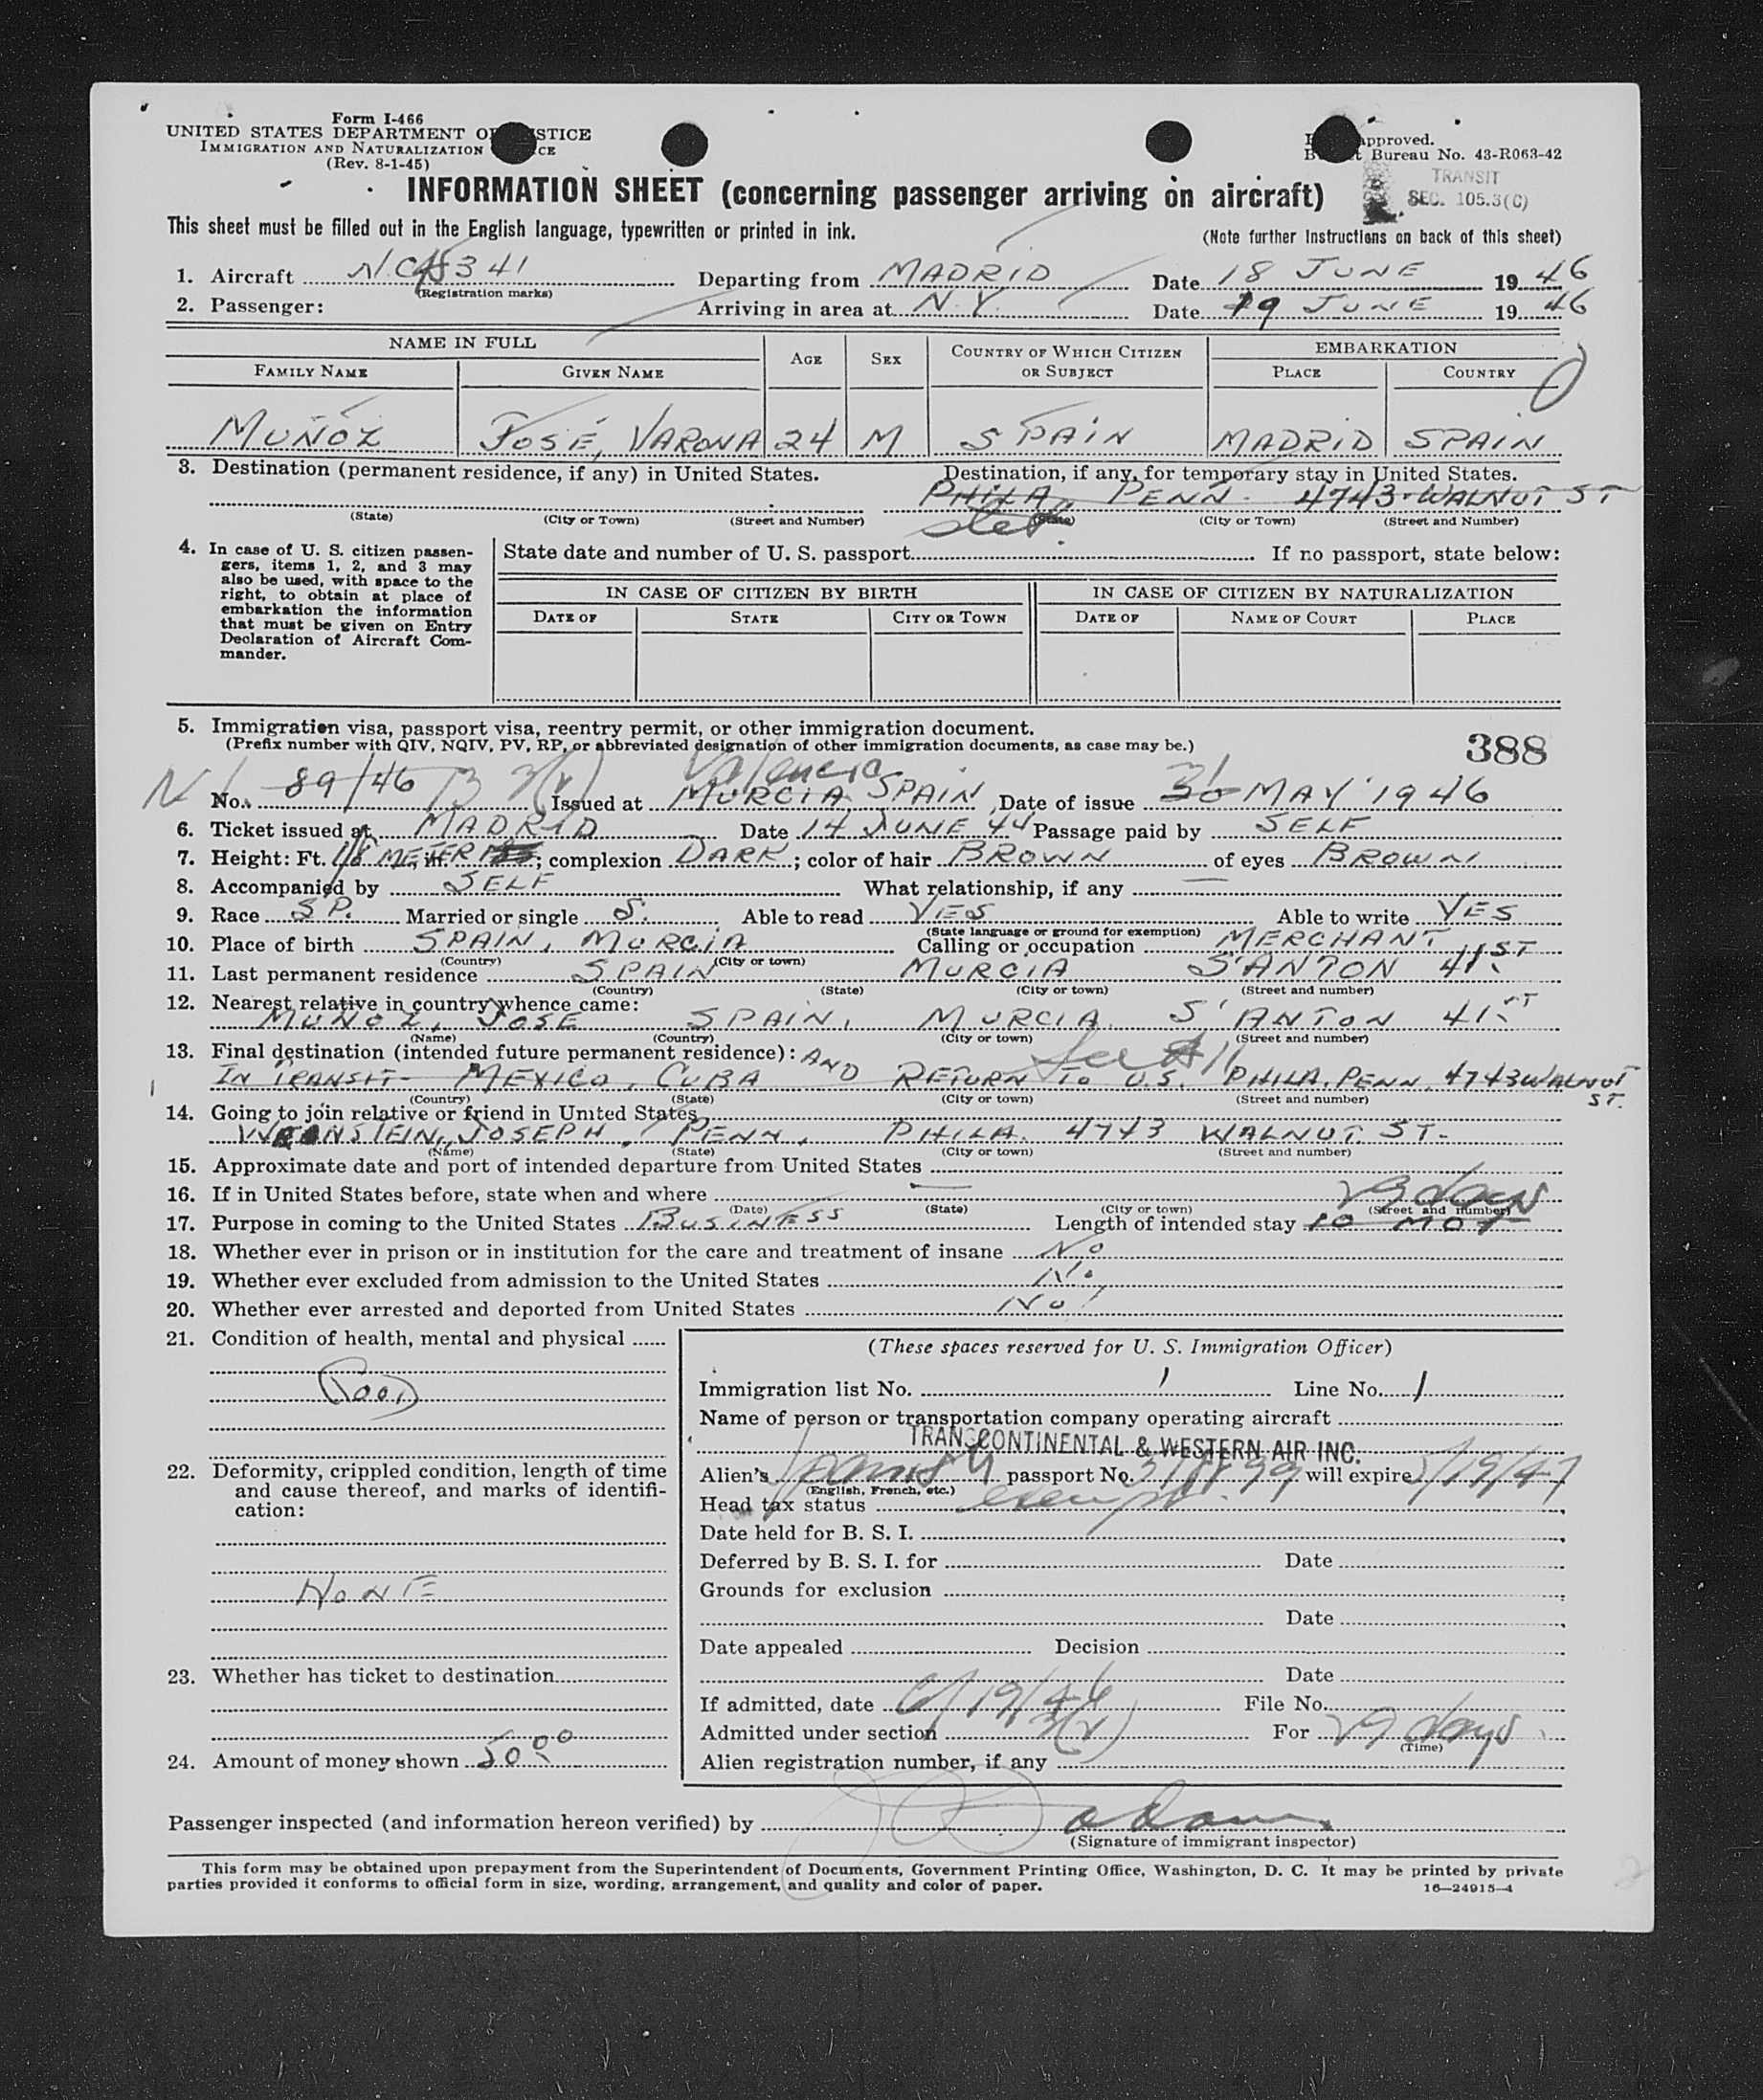 Form I-466
UNITED STATES DEPARTMENT OF JUSTICE
IMMIGRATION AND NATURALIZATION
(Rev. 8-1-45)
approved.
Bureau No. 43-R063-42
TRANSIT
SEC. 105.3(C)
INFORMATION SHEET (concerning passenger arriving on aircraft)
This sheet must be filled out in the English language, typewritten or printed in ink.
(Note further instructions on back of this sheet)
1. Aircraft (Registration marks) Departing from MADRID Date 18 JUNE 1946
2. Passenger: Arriving in area at N.Y. Date 19 JUNE 1946
NAME IN FULL AGE SEX COUNTRY OF WHICH CITIZEN OR SUBJECT EMBARKATION
FAMILY NAME GIVEN NAME PLACE COUNTRY
MUÑOZ JOSÉ, VARONA 24 M SPAIN MADRID SPAIN
3. Destination (permanent residence, if any) in United States. Destination, if any, for temporary stay in United States.
PHILA PENN. 4743 WALNUT ST
(State) (City or Town) (Street and Number) (State) (City or Town) (Street and Number)
4. In case of U. S. citizen passengers, items 1, 2, and 3 may also be used, with space to the right, to obtain at place of embarkation the information that must be given on Entry Declaration of Aircraft Commander.
State date and number of U. S. passport If no passport, state below:
IN CASE OF CITIZEN BY BIRTH IN CASE OF CITIZEN BY NATURALIZATION
DATE OF STATE CITY OR TOWN DATE OF NAME OF COURT PLACE
5. Immigration visa, passport visa, reentry permit, or other immigration document.
(Prefix number with QIV, NQIV, PV, RP, or abbreviated designation of other immigration documents, as case may be.)
388
Valencia
No. 89/46 Issued at MURCIA SPAIN Date of issue MAY 1946
6. Ticket issued at MADRID Date 14 JUNE 44 Passage paid by SELF
7. Height: Ft. METER; complexion DARK; color of hair BROWN of eyes BROWN
8. Accompanied by SELF What relationship, if any —
9. Race SP. Married or single S. Able to read YES Able to write YES
(State language or ground for exemption)
10. Place of birth SPAIN, MURCIA Calling or occupation MERCHANT
(Country) (City or town)
11. Last permanent residence SPAIN MURCIA S'ANTON 41 ST
(Country) (State) (City or town) (Street and number)
12. Nearest relative in country whence came:
MUÑOZ, JOSE SPAIN, MURCIA. S'ANTON 41 ST
(Name) (Country) (City or town) (Street and number)
13. Final destination (intended future permanent residence):
IN TRANSIT - MEXICO, CUBA AND RETURN TO U.S. PHILA. PENN. 4743 WALNUT ST.
(Country) (State) (City or town) (Street and number)
14. Going to join relative or friend in United States
JOSEPH, PENN, PHILA. 4743 WALNUT ST.
(Name) (State) (City or town) (Street and number)
15. Approximate date and port of intended departure from United States
16. If in United States before, state when and where —
(Date) (State) (City or town) (Street and number)
29 days
17. Purpose in coming to the United States BUSINESS Length of intended stay
18. Whether ever in prison or in institution for the care and treatment of insane No
19. Whether ever excluded from admission to the United States No
20. Whether ever arrested and deported from United States No
21. Condition of health, mental and physical
GOOD
22. Deformity, crippled condition, length of time and cause thereof, and marks of identification:
NONE
23. Whether has ticket to destination
24. Amount of money shown 50.00
(These spaces reserved for U. S. Immigration Officer)
Immigration list No. 1 Line No. 1
Name of person or transportation company operating aircraft
TRANSCONTINENTAL & WESTERN AIR INC.
Alien's Spanish passport No. will expire 5/19/47
(English, French, etc.)
Head tax status exempt.
Date held for B. S. I.
Deferred by B. S. I. for Date
Grounds for exclusion
Date
Date appealed Decision
Date
If admitted, date 6/19/46 File No.
Admitted under section 3(2) For 29 days
(Time)
Alien registration number, if any
Passenger inspected (and information hereon verified) by
(Signature of immigrant inspector)
This form may be obtained upon prepayment from the Superintendent of Documents, Government Printing Office, Washington, D. C. It may be printed by private
parties provided it conforms to official form in size, wording, arrangement, and quality and color of paper.
16—24915-4